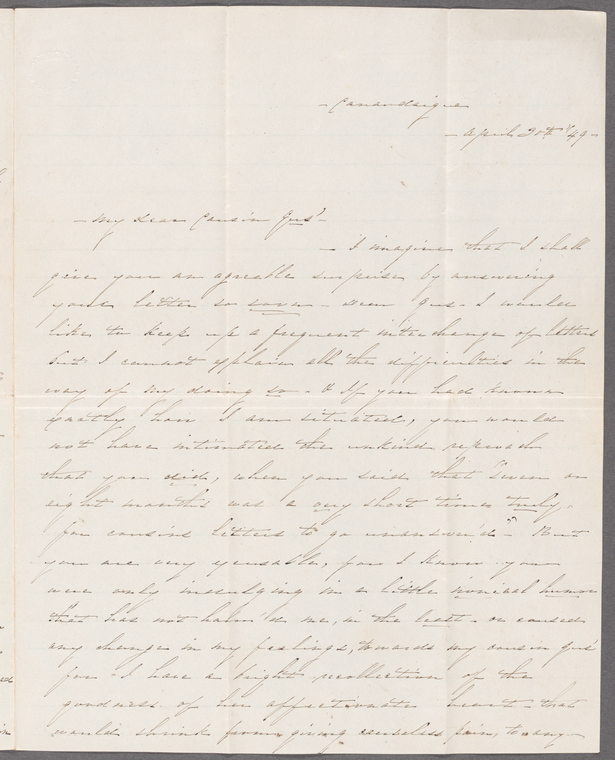 - Canandaigua
- April 30th '49 -
- My dear Cousin Gus' -
- I imagine that I shall
give you an agreable surprise by answering
your letter so soon - dear Gus - I would
like to keep up a frequent interchange of letters
but I cannot explain all the difficulties in the
way of my doing so - If you had known
exactly how I am situated, you would
not have intimated the unkind reproach
that you did, when you said that "seven or
eight months was a very short time truly,
for cousins letters to go unanswer'd" - But
you are very excusable, for I know you
were only indulging in a little ironical humor
that has not harm'd me, in the least - or caused
any change in my feelings, towards my cousin Gus'
for I have a bright recollection of the
goodness of her affectionate heart - that
would shrink from giving causeless pain, to any